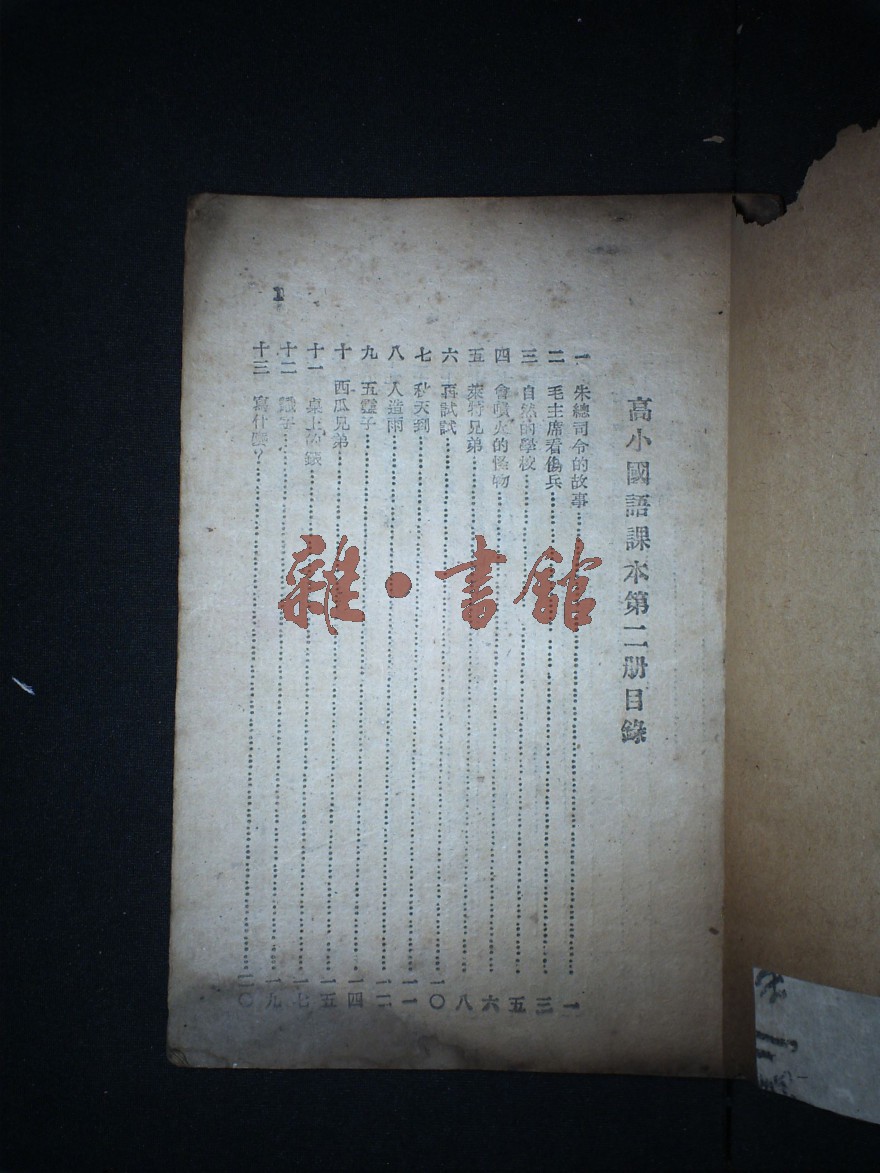 高小國語課本第二册目錄
一 朱總司令的故事……一
二 毛主席看傷兵……三
三 自然的學校……五
四 會噴火的怪物……六
五 萊特兄弟……八
六 再試試……一〇
七 秋天到……一一
八 人造雨……一二
九 五壟子……一四
十 西瓜兄弟……一五
十一 桌上的……一七
十二 ……一九
十三 寫什麼？……二〇
1
雜·書館